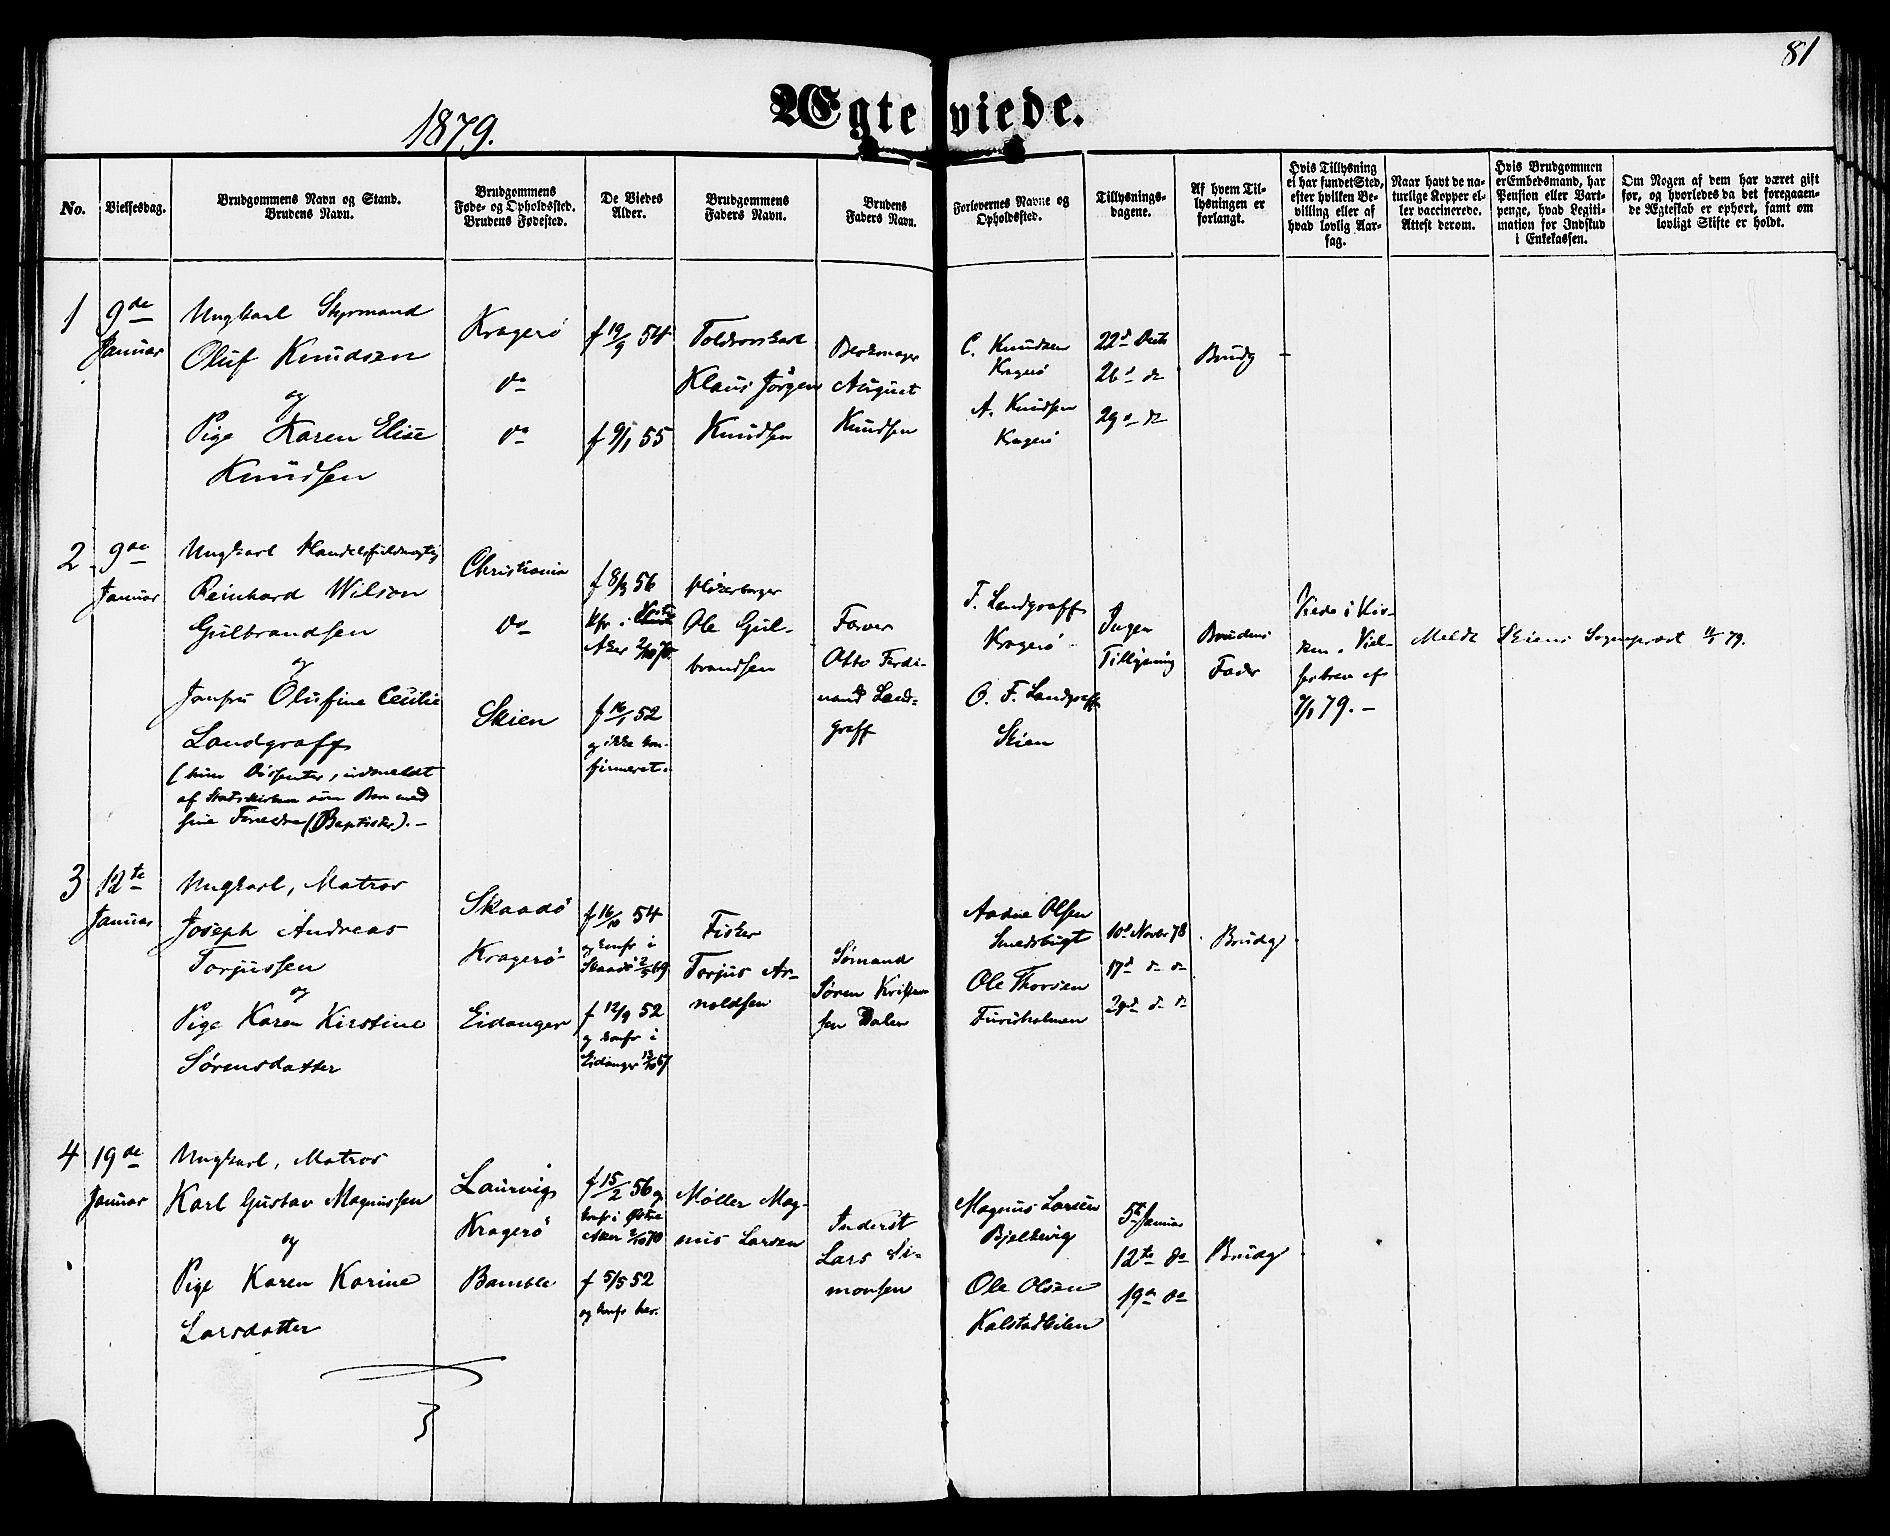 81
Ægteviede.
1879.
No.
Vielsesdag.
Brudgommens Navn og Stand.
Brudens Navn.
Brudgommens
Føde- og Opholdssted.
Brudens Fødested.
De Viedes
Alder.
Brudgommens
Faders Navn.
Brudens
Faders Navn.
Forlovernes Navne og
Opholdssted.
Tillysnings-
dagene.
Af hvem Til-
lysningen er
forlangt.
Hvis Tillysning
ei har fundet Sted,
efter hvilken Be-
villing eller af
hvad lovlig Aar-
sag.
Naar havt de na-
turlige Kopper el-
ler vaccinerede.
Attest derom.
Hvis Brudgommen
er Embedsmand, har
Pension eller Vart-
penge, hvad Legiti-
mation for Indskud
i Enkekassen.
Om Nogen af dem har været gift
før, og hvorledes da det foregaaen-
de Ægteskab er ophørt, samt om
lovligt Skifte er holdt.
1
9de
Januar
Ungkarl Styrmand
Oluf Knudsen
og
Pige Karen Elise
Knudsen
Kragerø
do
do
f 19/9 54
f 9/1 55
Klaus Jørgen
Knudsen
August
Knudsen
C. Knudsen
Kragerø
A. Knudsen
Kragerø
22d
26d do
29d do
Brudg
2
9de
Januar
Ungkarl Handelsfuldmægtig
Reinhard Wilson
Gulbrandsen
og
Jomfru Olufine Cecilie
Landgraff
(hun Dissenter, udmeldt
af Statskirken som Barn med
sine Forældre (Baptister). -
Christiania
do
Skien
f 8/3 56
Kfr. i
Aker 2/10 70.
f 16/1 52
og ikke kon-
firmeret.
Ole Gul-
brandsen
Farver
Otto Ferdi-
nand Land-
graff
F. Landgraff
Kragerø
O. F. Landgraff
Skien
Ingen
Tillysning
Brudens
Fader
Viede i Kir-
ken. Viel-
sesbrev af
79. -
Meldt Skiens Sognepræst 79.
3
12te
Januar
Ungkarl, Matros
Joseph Andreas
Torjussen
og
Pige Karen Kirstine
Sørensdatter
Skaadø
Kragerø
Eidanger
f 16/10 54
og konfr i
Skaadø 2/5 69
f 12/9 52
og konfr i
Eidanger 67
Fisker
Torjus Ar-
noldsen
Sømand
Søren Kristen-
sen Dalen
Aadne Olsen
Smedsbugt
Ole Thorsen
Furuholmen
10d Novbr 78
17d do do
24d do do
Brudg
4
19de
Januar
Ungkarl, Matros
Karl Gustav Magnussen
og
Pige Karen Karine
Larsdatter
Laurvig
Kragerø
Bamble
f 15/2 56 og
konfr i Østre
Aker 2/10 70
f 5/5 52
og konfr her.
Møller Mag-
nus Larsen
Inderst
Lars Si-
monsen
Magnus Larsen
Bjelkevig
Ole Olsen
Kalstadkilen
5te Januar
12te do
19de do
Brudg
3